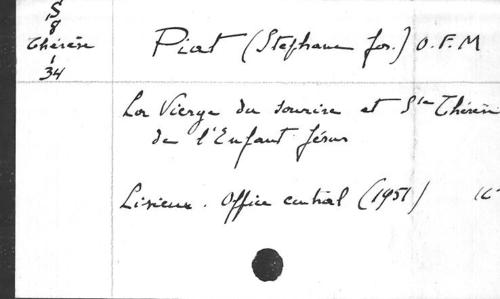 S
8
Thérèse
1
34
Piat (Stephane Jos.) O.F.M
La Vierge du Sourire et Ste Thérèse
de l'Enfant Jésus
Lisieux. Office central (1951)